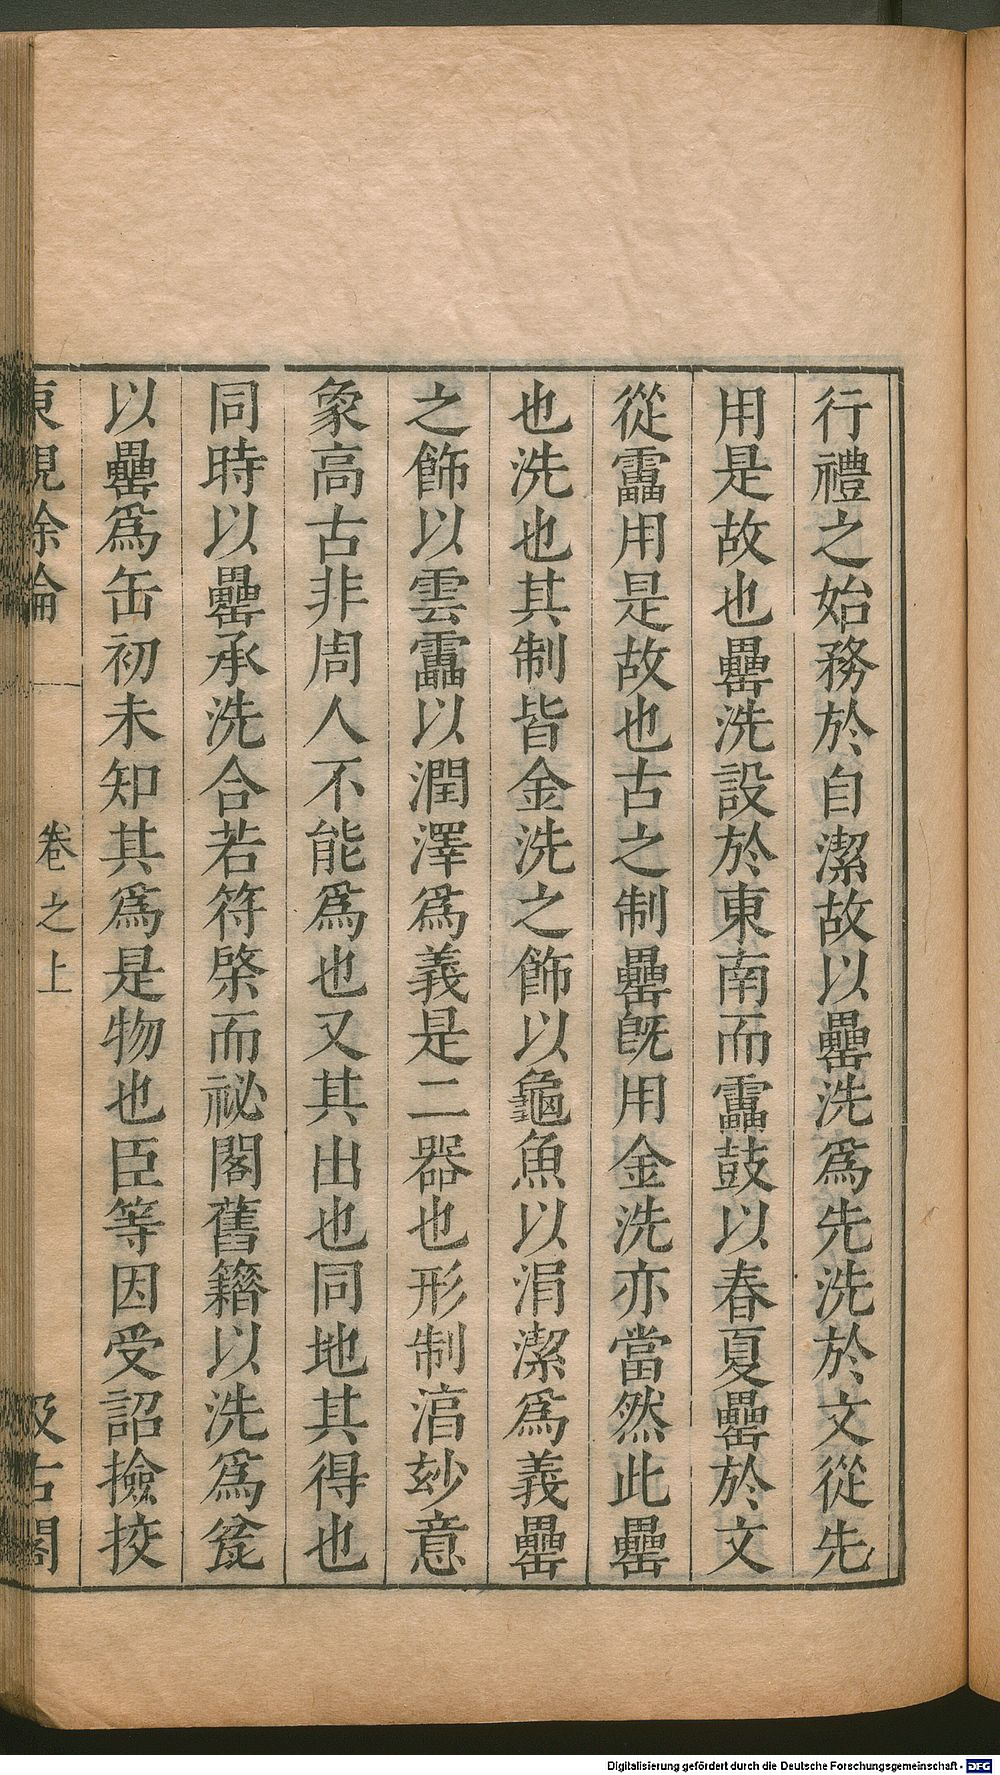 行禮之始務於自潔故以罍洗爲先洗於文從先
用是故也罍洗設於東南而靁鼓以春夏罍於文
從靁用是故也古之制罍旣用金洗亦當然此罍
也洗也其制皆金洗之飾以龜魚以涓潔爲義罍
之飾以雲靁以潤澤爲義是二器也形制渻玅意
象高古非周人不能爲也又其出也同地其得也
同時以罍承洗合若符棨而祕閣舊籍以洗爲瓫
以罍爲缶初未知其爲是物也臣等因受詔撿挍
東觀餘論
卷之上
汲古閣
Digitalisierung gefördert durch die Deutsche Forschungsgemeinschaft - DFG